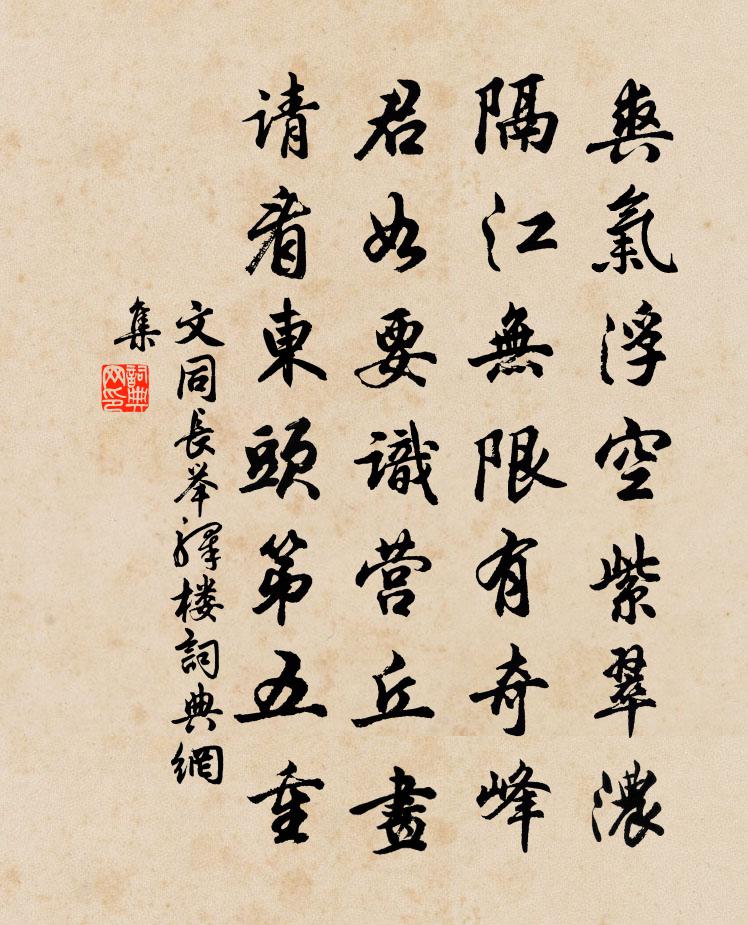 爽氣浮空紫翠濃
隔江無限有奇峰
君如要識营丘畫
请看東頭第五重
文同長举驿楼詞典網
集
詞典网印